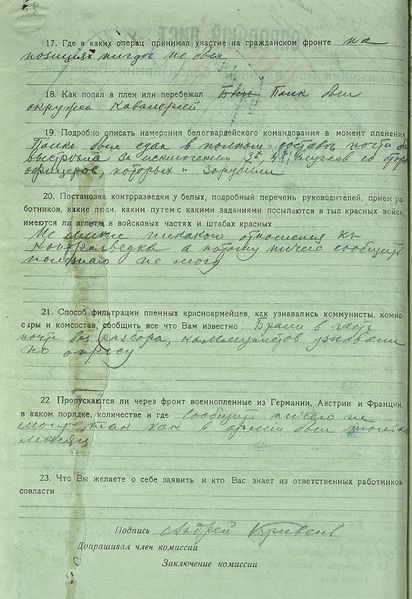 17. Где в каких операц принимал участие на гражданском фронте на
позициях нигде не был
18. Как попал в плен или перебежал Полк был
окружен Кавалерией
19. Подробно описать намерения белогвардейского командования в момент пленения
Полк был сдан в полном составе почти без
выстрела за исключением
офицеров, которых и Зарубили
20. Постановка контрразведки у белых, подробный перечень руководителей, прием ра
ботников, какие люди, каким путем с какими заданиями посылаются в тыл красных войск
имеются ли агенты в войсковых частях и штабах красных
Не имел никакого отношения к
контрразведке а потому ничего сообщить
не могу
21. Способ фильтрации пленных красноармейцев, как узнавались коммунисты, комис-
сары и комсостав, сообщить все что Вам известно. Брали в часть
почти без разбора, коммунистов узнавали
по опросу
22 Пропускаются ли через фронт военнопленные из Германии, Австрии и Франции,
в каком порядке, количестве и где Сообщить ничего не
могу так как в армии был только
месяц
23. Что Вы желаете о себе заявить и кто Вас знает из ответственных работников
совласти
Подпись Андрей
Допрашивал член комиссии
Заключение комиссии